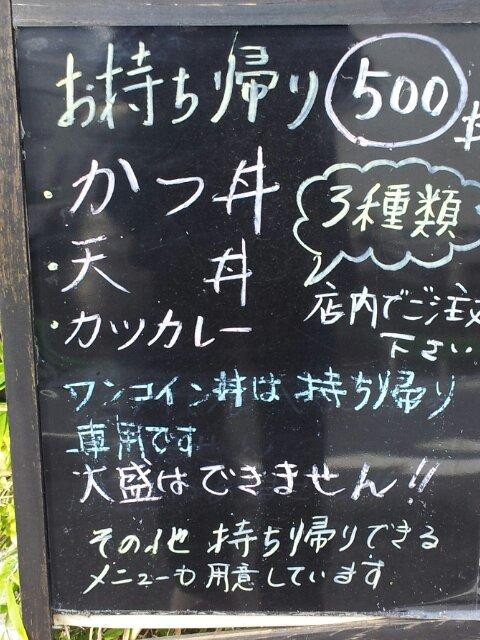 お持ち帰り 500
・かつ丼
3種類
・天 丼
・カツカレー
店内でご注
下さい
ワンコイン丼は持ち帰り
専用です
大盛はできません!!
その他 持ち帰りできる
メニューも用意しています